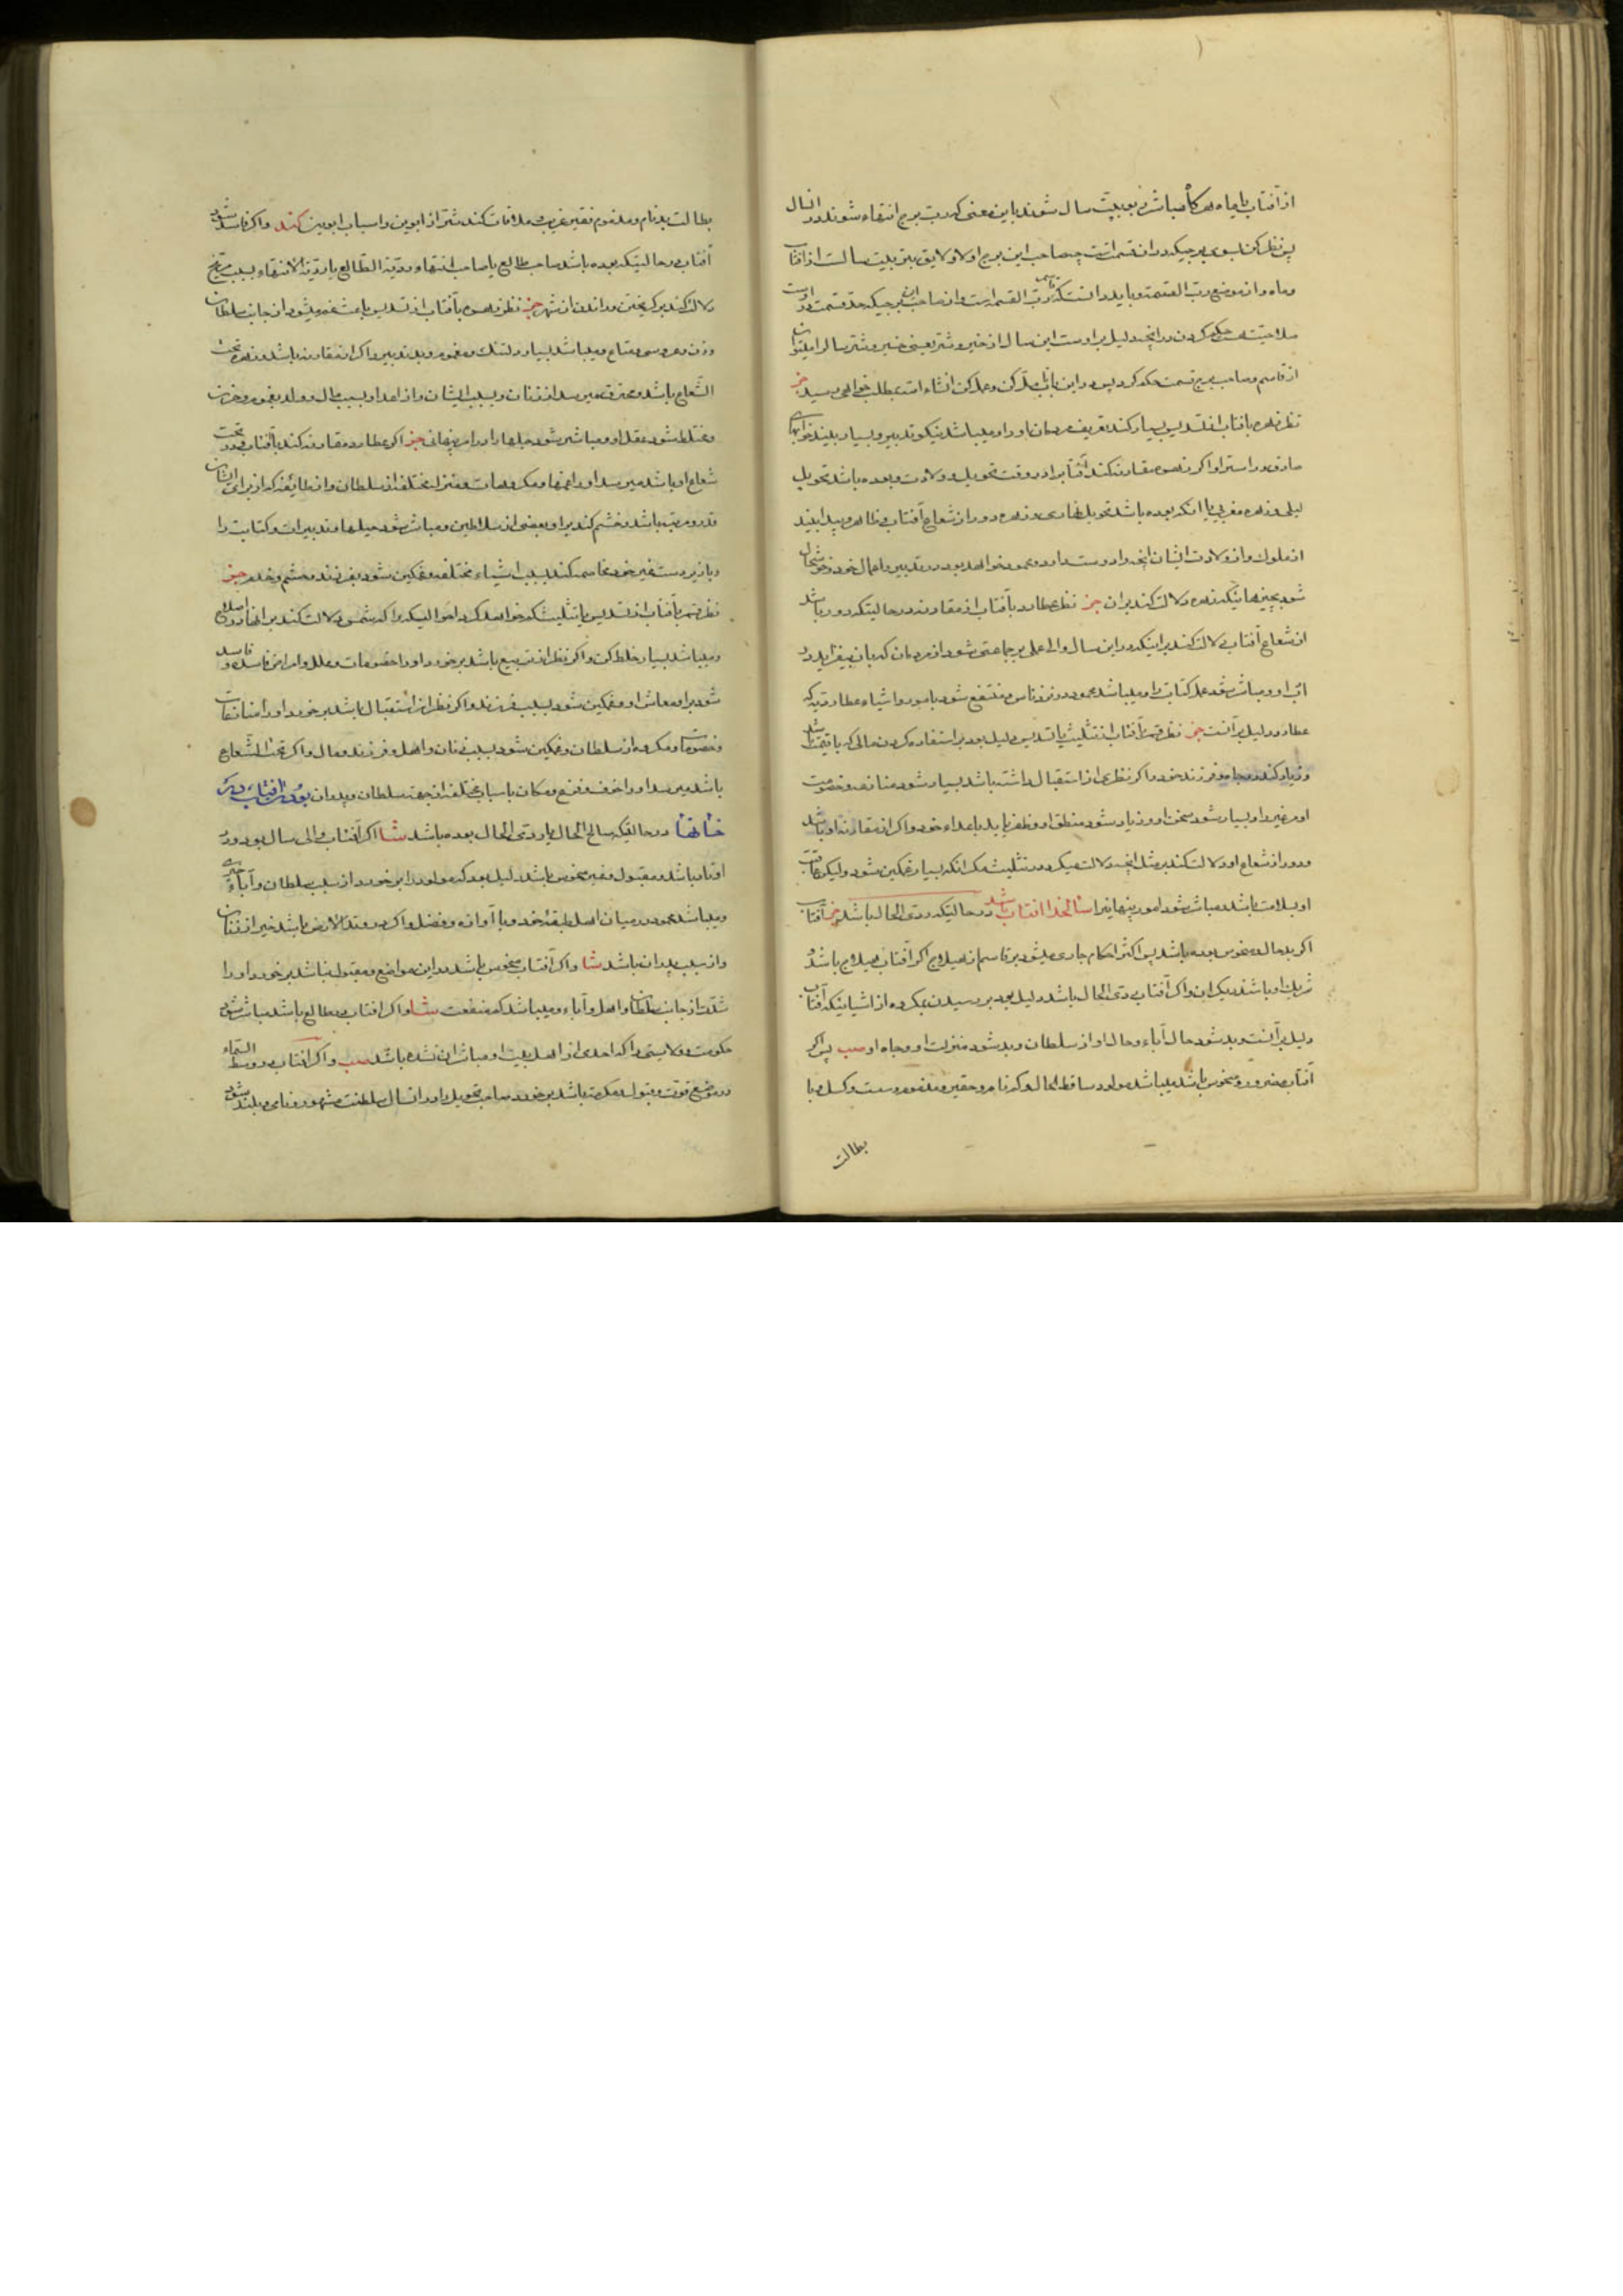 از آفتاب یا ماه هر کدام مباشر ربوبیت سال شوند باین معنی که رب برج انتهاء شوند در انسال
پس نظر کن بسوی برجیکه در ان قسمتست چه صاحب این برج اولا ولایق بتربیت سالست از آفتاب
وماه و از موضع رب القسمة و باید دانست که قاسم رب القسمه است و از صاحب این برجیکه حد قسمت در اوست
صلاحیت حکم کردن در انچه دلیل بر اوست این سال از خیر و شر یعنی خیر و شر سال را میتوان
از قاسم وصاحب برج قسمت حکم کرد پس در این باب تامل کن وعمل کن انشاء الله بمطلب خواهی رسید جز
نظر زهره بآفتاب از تسدیس بسیار کند تعریف مردمان او را ومیباشد نیکو تدبیر و بسیار بیند خوابهای
صادق و راست را واکر زهره مقارنه کند آفتاب را در وقت تحویل و ولادت وبوده باشد تحویل
لیلی وزهره مغربی یا انکه بوده باشد تحویل نهاری وزهره دور از شعاع آفتاب وظاهر وپیدا بیند
از ملوک واز ولادت ایشان انچه را دوست دارد ومحمود خواهد بود در تدبیر واعمال خود وخوشحال
شود بچیزهائیکه زهره دلالت کند بران جز نظر عطارد بآفتاب از مقارنه در حالیتکه دور باشد
از شعاع آفتاب دلالت کند بر اینکه در این سال والی علی بر جماعتی شود از مردمان که بان بیفزاید در
اب او ومباشر شود عمل کتابت را ومیباشد محمود در نزد ناس ومنتفع شود بامور واشیاء عطاردیه که
عطارد دلیل بر آنست جز نظر قمر بآفتاب از تثلیث یا تسدیس دلیل بود بر استفاده کردن مالی که باقیمت باشد
وزیاد کند در جاه وفرزند خود واکر نظر قمر از استقبال داشته باشد بسیار شود منازعه وخصومت
او وغیر او بسیار شود سخن او وزیاد شود منطق او وظفر یابد باعداء خود واکر از مقارنه او باشد
ودور از شعاع او دلالت کند بر مثل انچه دلالت میکرد در تثلیث مکر انکه بسیار غمکین شود ولیکن عاقبت
او بسلامت باشد ومباشر شود امور پنهانیرا سالخدا افتاب باشد در حالیتکه ردی الحال باشد جز آفتاب
اکر بد حال ومنحوس بوده باشد پس اکثر احکام جاری میشود بر قاسم از هیلاج اکر آفتاب هیلاج باشد و
شریک او باشد دیکران واکر آفتاب ردی الحال باشد دلیل بود بر رسیدن مکروه از اشیائیکه آفتاب
دلیل بر آنست وبد شود حال آباء وحال او از سلطان وبد شود منزلت او وجاه او صب پس اکر
آفتاب متغیر ومنحوس باشد میباشد مولود ساقط الحال وکم نام وحقیر ومذموم وسست وکسل وبا
بطالت
بطالت بد نام ومذموم فقیر غریب وملاقات کند شتر از ابوین واسباب ابوین کند واکر فاسد شود
آفتاب در حالیتکه بوده باشد صاحب طالع یا صاحب انتهاء ودقیقه الطالع یا دقیقه الانتهاء بسبب مریخ
دلالت کند بر کریختن ورانده از شهر جز نظر زهره بآفتاب از تسدیس باعث غم میشود از جانب سلطان
وزن وعروسی ومتاع ومیباشد بسیار دلتنک ومغموم وبد تدبیر واکر از مقارنه باشد وزهره تحت
الشعاع باشد ومحترق میرسد از زنان وبسبب ایشان واز اعدا وبسبب مال وولد بغم وحزن
ومختلط شود عقل او ومباشر شود حیلها را در امر پنهانی جز اکر عطارد مقارنه کند بآفتاب ودر تحت
شعاع او باشد میرسد او را تهمتها ومکروهات وفتنه مختلفه از سلطان واز طائفه که از برای ایشان
قدر ومرتبه باشد وخشم کند بر او بعضی از سلاطین ومباشر شود حیلها وتدبیرات وکتابت را
وباز بر دست غیر خود مخاصمه کند بسبب اشیاء مختلفه وغمکین شود بفرزند وحشم وخدم جز
نظر قمر بآفتاب از تسدیس یا تثلیث حکم خواهد کرد احوالیکه برا که شمس دلالت کند بر انها در اصلاح
ومیباشد بسیار غلط کن واکر نظر از تربیع باشد برخورد او را خصومات وعلل وامراض فاسده وفاسد
شود بر او معاش او وغمکین شود بسبب فرزند واکر نظر از استقبال باشد برخورد او را منازعات
وخصومات ومکروه از سلطان وغمکین شود بسبب زنان واهل وفرزند ومال واکر تحت الشعاع
باشد میرسد او را خوف وفزع ومکان باسباب مختلفه از جهة سلطان وپدران بودن آفتاب در
خانها در حالیتکه صالح الحال یا ردی الحال بوده باشد شا اکر آفتاب والی سال بود ودر
اوتاد باشد ومقبول وغیر منحوس باشد دلیل بود که مولود را برخورد از سبب سلطان وآباء خیری
ومیباشد محمود در میان اهل طبقه خود وبا آوازه وفضل واکر در وتد الارض باشد خیر از زنان
واز سبب پدران باشد شا واکر آفتاب منحوس باشد در این مواضع ومقبول نباشد برخورد او را
شدت از جانب سلطان واهل وآباء ومیباشد کم منفعت شا واکر افتاب در طالع باشد مباشر شود
حکومت وولایتی را که احدی از اهل بیت او مباشر ان نشده باشد صب واکر افتاب در وسط السماء
در موضع قوت وقبول ومکرمت باشد برخورد صاحب تحویل را در انسال سلطنت مشهور ونامی وبلند شود